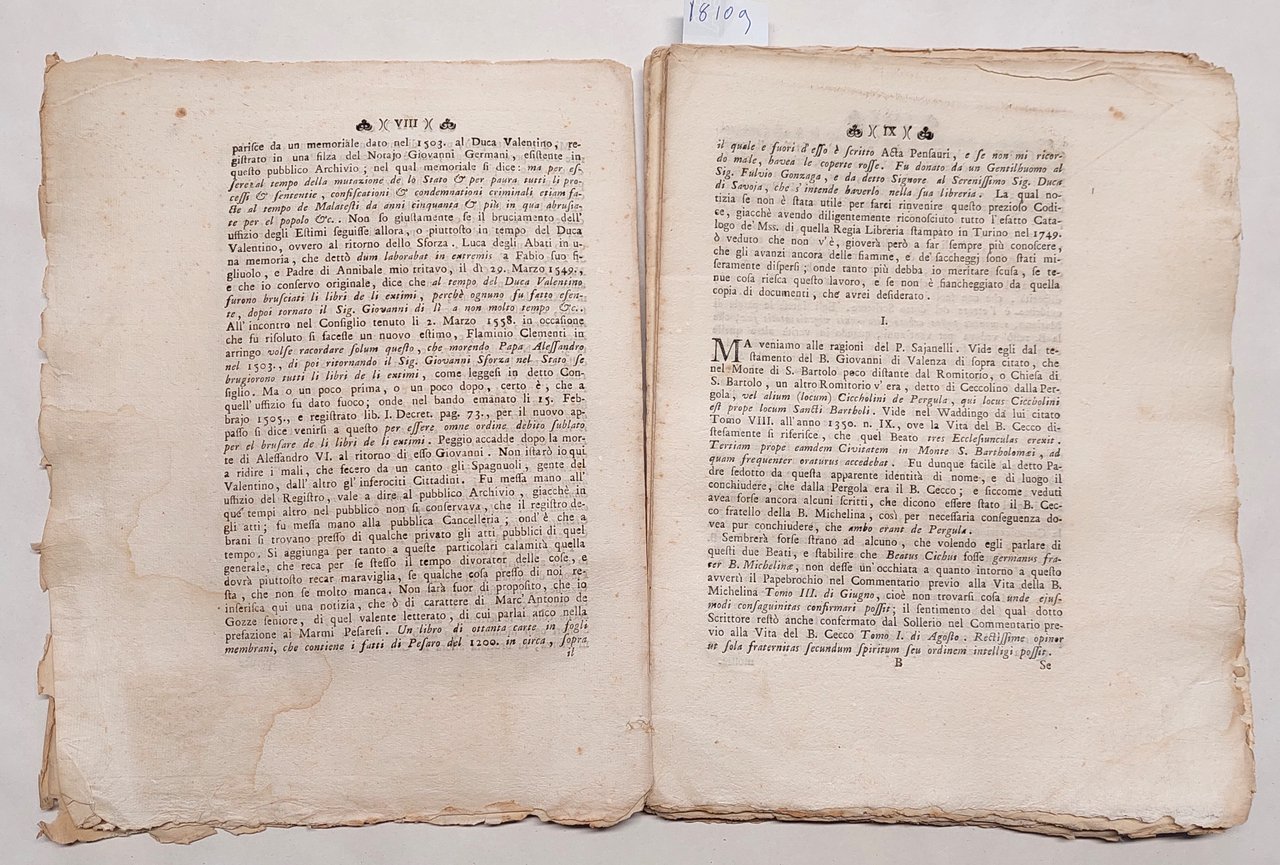 18109
VIII
parisce da un memoriale dato nel 1503. al Duca Valentino, re-
gistrato in una filza del Notajo Giovanni Germani, esistente in
questo pubblico Archivio; nel qual memoriale si dice: ma per es-
sere al tempo della mutazione de lo Stato & per paura tutti li pro-
cessi & sententie, confiscationi & condemnationi criminali etiam fa-
cte al tempo de Malatesti da anni cinquanta & più in qua abrusia-
te per el popolo &c.. Non so giustamente se il bruciamento dell'
uffizio degli Estimi seguisse allora, o piuttosto in tempo del Duca
Valentino, ovvero al ritorno dello Sforza. Luca degli Abati in u-
na memoria, che dettò dum laborabat in extremis a Fabio suo fi-
gliuolo, e Padre di Annibale mio tritavo, il dì 29. Marzo 1549.,
e che io conservo originale, dice che al tempo del Duca Valentino
furono brusciati li libri de li extimi, perchè ognuno fu fatto esen-
te, dopoi tornato il Sig. Giovanni di lì a non molto tempo &c..
All' incontro nel Consiglio tenuto li 2. Marzo 1558. in occasione
che fu risoluto si facesse un nuovo estimo, Flaminio Clementi in
arringo volse racordare solum questo, che morendo Papa Alessandro
nel 1503., di poi ritornando il Sig. Giovanni Sforza nel Stato se
brugiorono tutti li libri de li extimi, come leggesi in detto Con-
siglio. Ma o un poco prima, o un poco dopo, certo è, che a
quell' uffizio fu dato fuoco; onde nel bando emanato li 15. Feb-
brajo 1505., e registrato lib. I. Decret. pag. 73., per il nuovo ap-
passo si dice venirsi a questo per essere omne ordine debito sublato
per el brusare de li libri de li extimi. Peggio accadde dopo la mor-
te di Alessandro VI. al ritorno di esso Giovanni. Non istarò io qui
a ridire i mali, che fecero da un canto gli Spagnuoli, gente del
Valentino, dall' altro gl' inferociti Cittadini. Fu messa mano all'
uffizio del Registro, vale a dire al pubblico Archivio, giacchè in
que' tempi altro nel pubblico non si conservava, che il registro de-
gli atti; fu messa mano alla pubblica Cancelleria; ond' è che a
brani si trovano presso di qualche privato gli atti pubblici di quel
tempo. Si aggiunga per tanto a queste particolari calamità quella
generale, che reca per se stesso il tempo divorator delle cose, e
dovrà piuttosto recar maraviglia, se qualche cosa presso di noi re-
sta, che non se molto manca. Non sarà fuor di proposito, che io
inserisca qui una notizia, che ò di carattere di Marc' Antonio de
Gozze seniore, di quel valente letterato, di cui parlai anco nella
prefazione ai Marmi Pesaresi. Un libro di ottanta carte in fogli
membrani, che contiene i fatti di Pesaro del 1200. in circa, sopra
il
IX
il quale e fuori d'esso è scritto Acta Pensauri, e se non mi ricor-
do male, havea le coperte rosse. Fu donato da un Gentilbuomo al
Sig. Fulvio Gonzaga, e da detto Signore al Serenissimo Sig. Duca
di Savoja, che s'intende haverlo nella sua libreria. La qual no-
tizia se non è stata utile per farei rinvenire questo prezioso Codi-
ce, giacchè avendo diligentemente riconosciuto tutto l'esatto Cata-
logo de' Mss. di quella Regia Libreria stampato in Turino nel 1749.
ò veduto che non v'è, gioverà però a far sempre più conoscere,
che gli avanzi ancora delle fiamme, e de' saccheggi sono stati mi-
seramente dispersi; onde tanto più debba io meritare scusa, se te-
nue cosa riesca questo lavoro, e se non è fiancheggiato da quella
copia di documenti, che avrei desiderato.
I.
MA veniamo alle ragioni del P. Sajanelli. Vide egli dal te-
stamento del B. Giovanni di Valenza di sopra citato, che
nel Monte di S. Bartolo poco distante dal Romitorio, o Chiesa di
S. Bartolo, un altro Romitorio v' era, detto di Ceccolino dalla Per-
gola, vel alium (locum) Ciccholini de Pergula, qui locus Ciccholini
est prope locum Sancti Bartholi. Vide nel Waddingo da lui citato
Tomo VIII. all'anno 1350. n. IX., ove la Vita del B. Cecco di-
stesamente si riferisce, che quel Beato tres Ecclesiunculas erexit.
Tertiam prope eamdem Civitatem in Monte S. Bartholomæi, ad
quam frequenter oraturus accedebat. Fu dunque facile al detto Pa-
dre sedotto da questa apparente identità di nome, e di luogo il
conchiudere, che dalla Pergola era il B. Cecco; e siccome veduti
avea forse ancora alcuni scritti, che dicono essere stato il B. Cec-
co fratello della B. Michelina, così per necessaria conseguenza do-
vea pur conchiudere, che ambo erant de Pergula.
Sembrerà forse strano ad alcuno, che volendo egli parlare di
questi due Beati, e stabilire che Beatus Cichus fosse germanus fra-
ter B. Michelinæ, non desse un'occhiata a quanto intorno a questo
avvertì il Papebrochio nel Commentario previo alla Vita della B.
Michelina Tomo III. di Giugno, cioè non trovarsi cosa unde ejus-
modi consaguinitas confirmari possit; il sentimento del qual dotto
Scrittore restò anche confermato dal Sollerio nel Commentario pre-
vio alla Vita del B. Cecco Tomo I. di Agosto. Rectissime opinor
ut sola fraternitas secundum spiritum seu ordinem intelligi possit.
B
Se